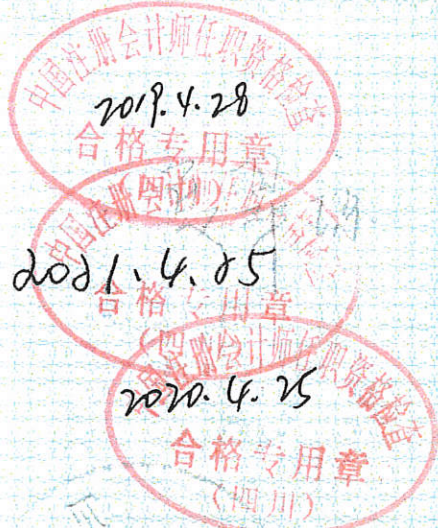 中国注册会计师任职资格检查
2019.4.28
合格专用章
(四川)
中国注册
2021.4.25
合格专用章
(四川)
中国注册会计师任职资格检查
2020.4.25
合格专用章
(四川)